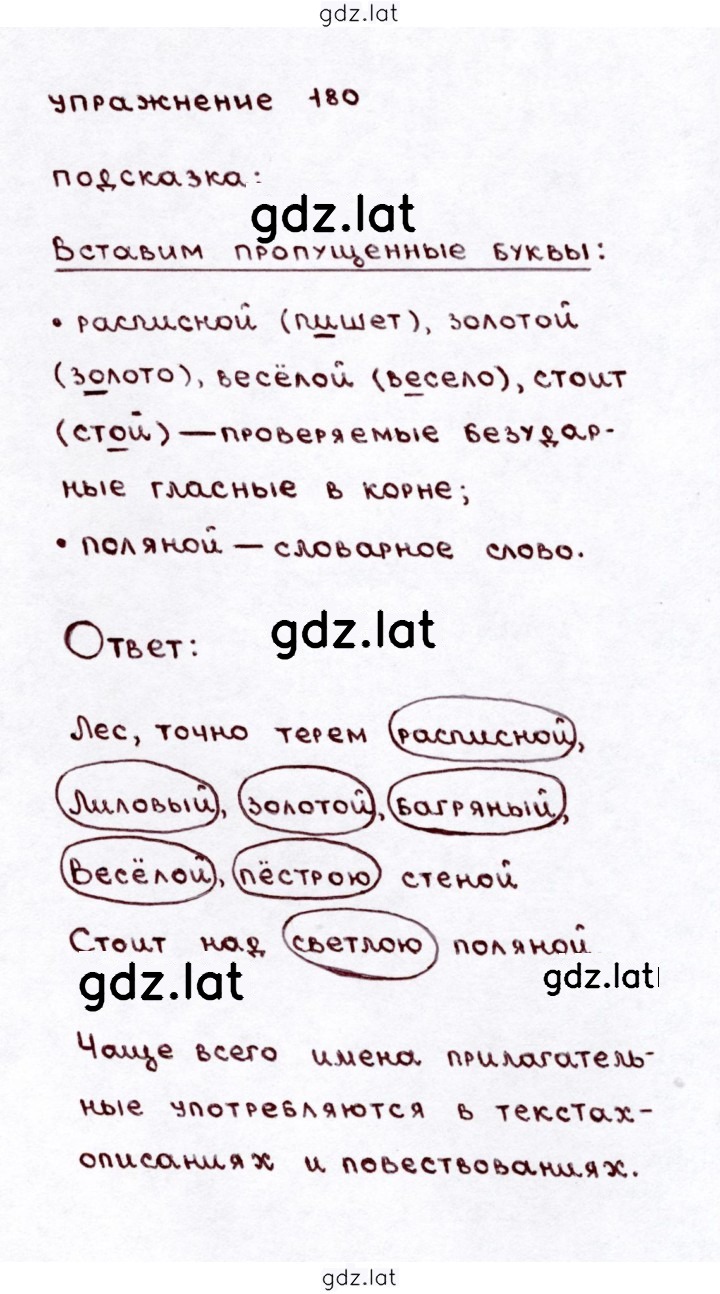 gdz.lat
упражнение 180
подсказка:
gdz.lat
Вставим пропущенные буквы:
• расписной (пишет), золотой
(золото), весёлой (весело), стоит
(стой) — проверяемые безудар-
ные гласные в корне;
• поляной — словарное слово.
Ответ:
gdz.lat
Лес, точно терем расписной,
Лиловый, золотой, багряный,
Весёлой, пёстрою стеной
Стоит над светлою поляной
gdz.lat
gdz.lat
Чаще всего имена прилагатель-
ные употребляются в текстах-
описаниях и повествованиях.
gdz.lat